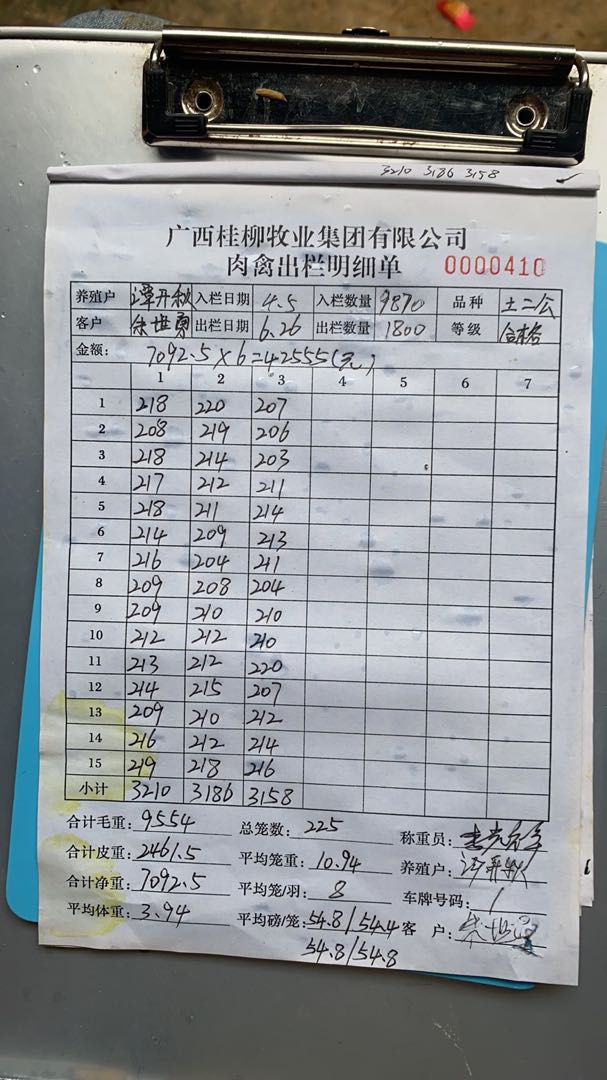 3210 3186 3158
广西桂柳牧业集团有限公司
肉禽出栏明细单 0000410
养殖户 谭丹秋 入栏日期 4.5 入栏数量 9870 品种 土二公
客户 朱世勇 出栏日期 6.26 出栏数量 1800 等级 合格
金额: 7092.5×6=42555(元)
1 2 3 4 5 6 7
1 218 220 207
2 208 219 206
3 218 214 203
4 217 212 211
5 218 211 214
6 214 209 213
7 216 204 211
8 209 208 204
9 209 210 210
10 212 212 210
11 213 212 220
12 214 215 207
13 209 210 212
14 216 212 214
15 219 218 216
小计 3210 3186 3158
合计毛重: 9554 总笼数: 225 称重员:
合计皮重: 2461.5 平均笼重: 10.94 养殖户: 谭丹秋
合计净重: 7092.5 平均笼/羽: 8 车牌号码: /
平均体重: 3.94 平均磅/笼: 54.8/54.4 客 户:
54.8/54.8